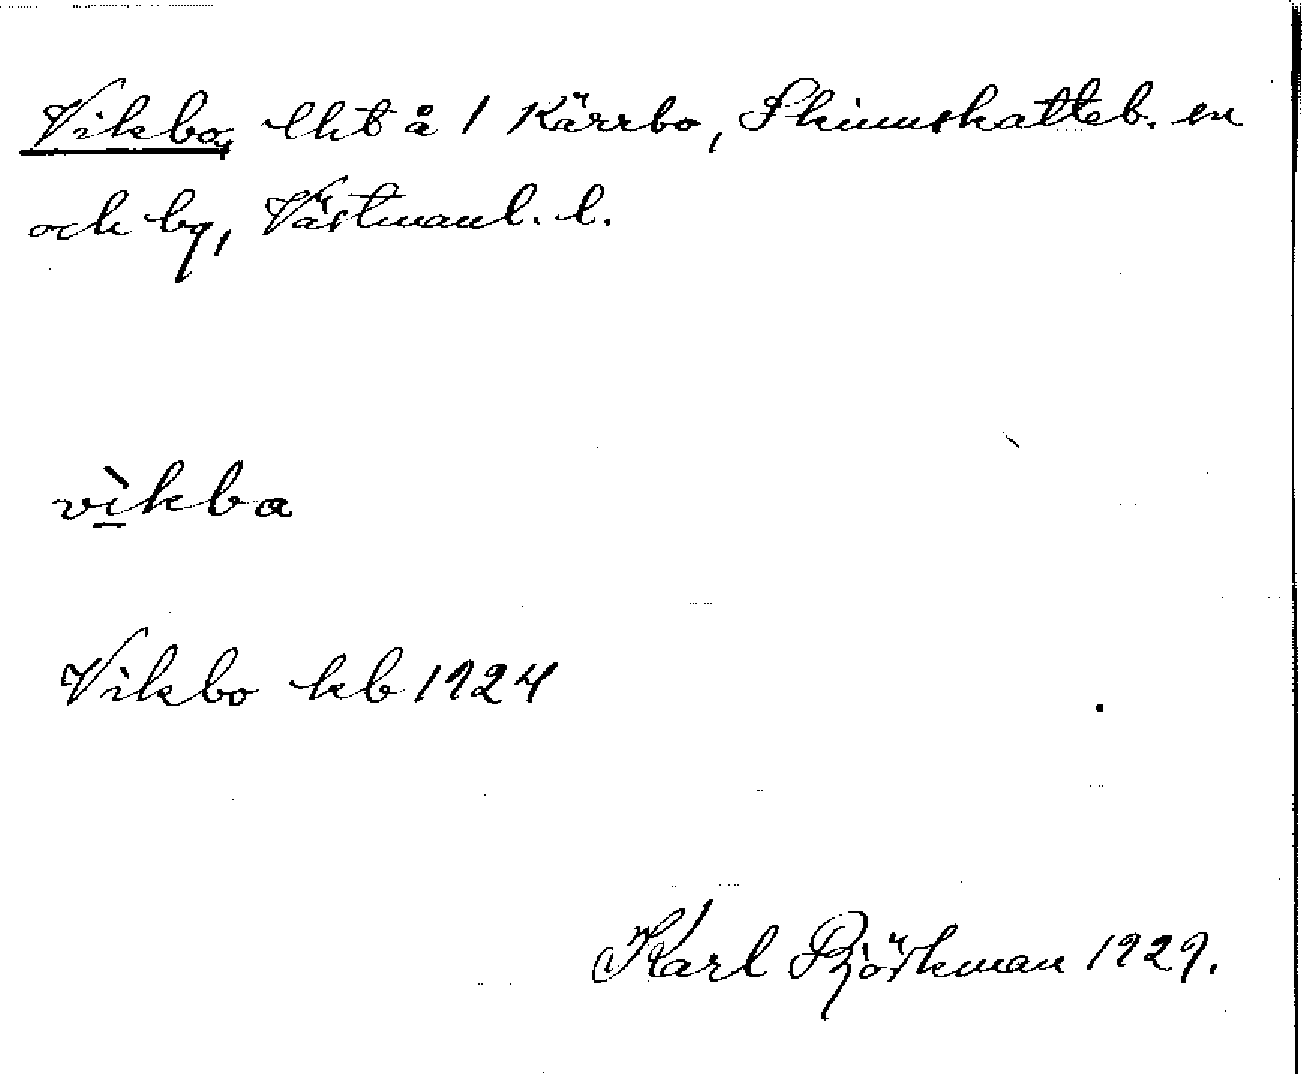 Vikbo, lht å 1 Kärrbo, Skinnskatteb. sn
och by, Västmanl. l.
vìkba
Vikbo kb 1924
Karl Björkman 1929.